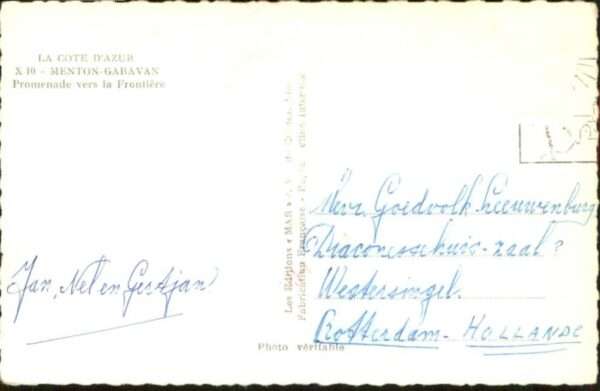 LA COTE D'AZUR
X 10 - MENTON-GARAVAN
Promenade vers la Frontière
Les Editions « MAR »
Fabrication Française -
Mevr. Goedvolk Leeuwenburg
Diaconessehuis-zaal?
Westersingel.
Rotterdam - HOLLANDE
Jan, Nel en Gertjan
Photo véritable